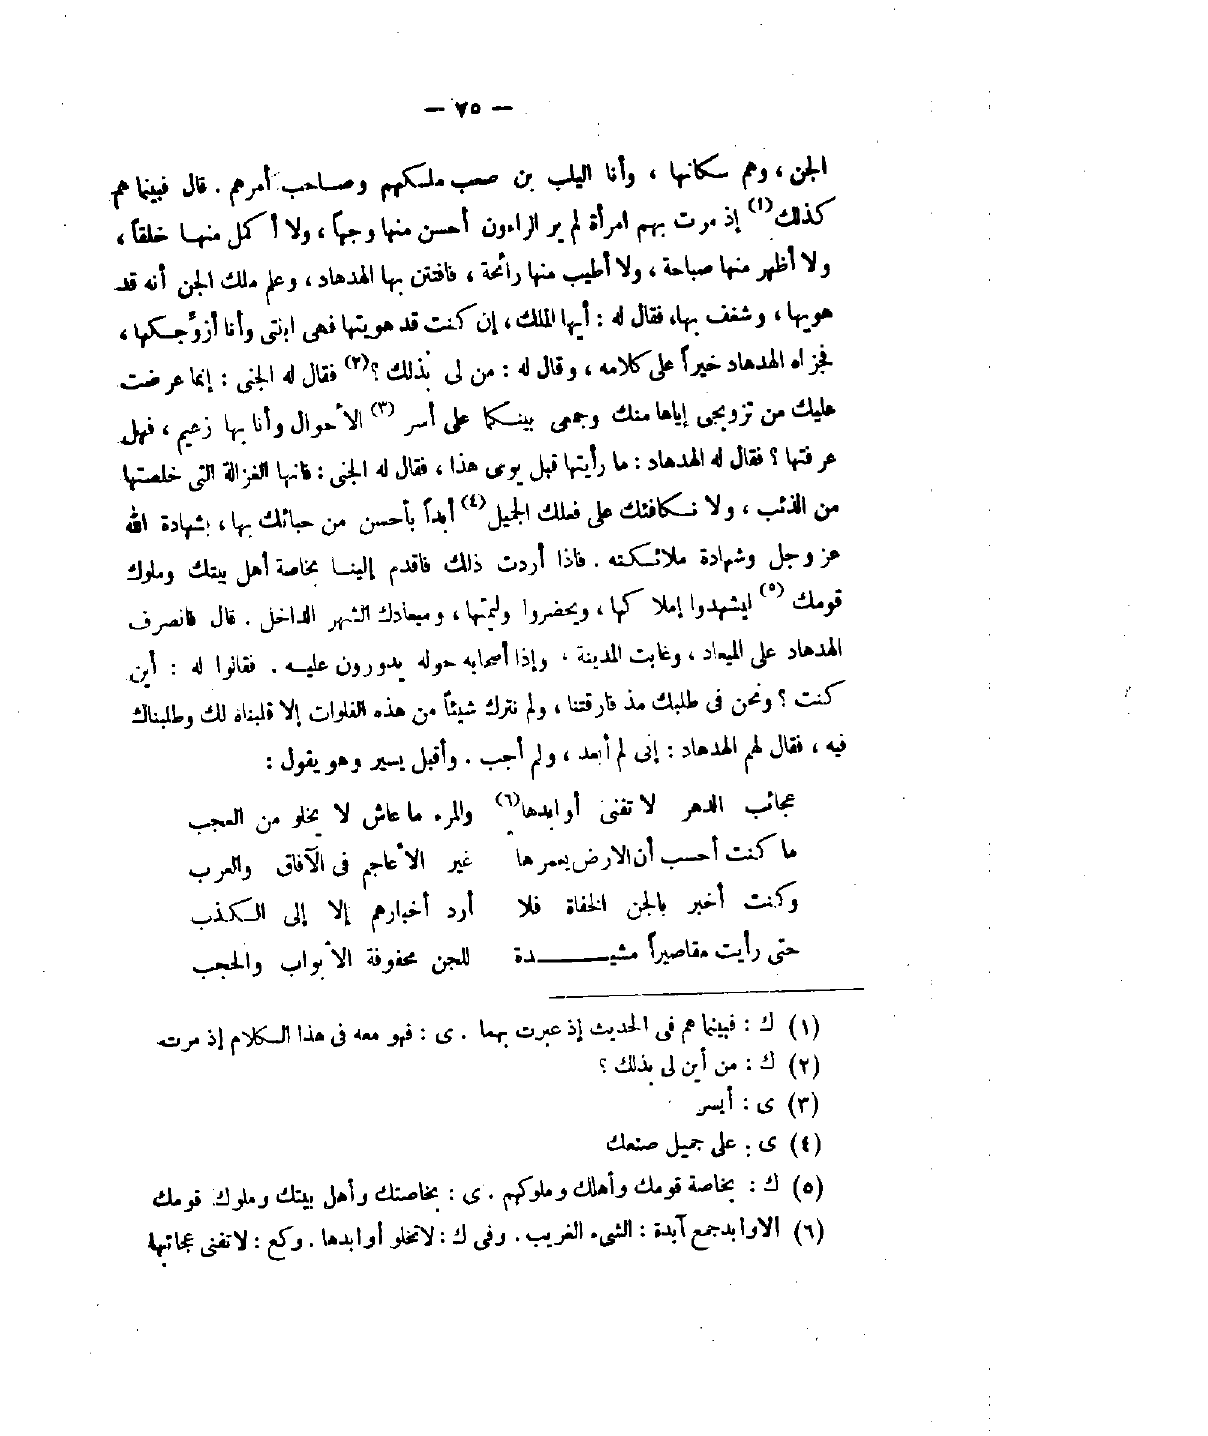 — ٧٥ —
الجن ، وهم سكانها ، وأنا اليلب بن صعب ملكهم وصاحب أمرهم . قال فبينما هم
كذلك (١) إذ مرت بهم امرأة لم ير الراءون أحسن منها وجهاً ، ولا أكمل منها خلقاً ،
ولا أظهر منها صباحة ، ولا أطيب منها رائحة ، فافتتن بها الهدهاد ، وعلم ملك الجن أنه قد
هويها ، وشغف بها، فقال له : أيها الملك ، إن كنت قد هويتها فهى ابنتى وأنا أزوِّجكها ،
فجزاه الهدهاد خيراً على كلامه ، وقال له : من لى بذلك ؟ (٢) فقال له الجنى : إنما عرضت
عليك من تزويجى إياها منك وجمعى بينكما على أسر (٣) الأحوال وأنا بها زعيم ، فهل
عرفتها ؟ فقال له الهدهاد : ما رأيتها قبل يومى هذا ، فقال له الجنى : فانها الغزالة التى خلصتها
من الذئب ، ولا نكافئك على فعلك الجميل (٤) أبداً بأحسن من حبائك بها ، بشهادة الله
عز وجل وشهادة ملائكته . فاذا أردت ذلك فاقدم إلينا بخاصة أهل بيتك وملوك
قومك (٥) ليشهدوا إملاكها ، ويحضروا وليمتها ، وميعادك الشهر الداخل . قال فانصرف
الهدهاد على الميعاد ، وغابت المدينة ، وإذا أصحابه حوله يدورون عليه . فقالوا له : أين
كنت ؟ ونحن فى طلبك مذ فارقتنا ، ولم نترك شيئاً من هذه الفلوات إلا قلبناه لك وطلبناك
فيه ، فقال لهم الهدهاد : إنى لم أبعد ، ولم أجب . وأقبل يسير وهو يقول :
عجائب الدهر لا تفنى أوابدها (٦) والمرء ما عاش لا يخلو من العجب
ما كنت أحسب أن الارض يعمرها غير الأعاجم فى الآفاق والعرب
وكنت أخبر بالجن الخفاة فلا أرد أخبارهم إلا إلى الكذب
حتى رأيت مقاصيراً مشيدة للجن محفوفة الأبواب والحجب
(١) ك : فبينما هم فى الحديث إذ عبرت بهما . ى : فهو معه فى هذا الكلام إذ مرت
(٢) ك : من أين لى بذلك ؟
(٣) ى : أيسر
(٤) ى : على جميل صنعك
(٥) ك : بخاصة قومك وأهلك وملوكهم . ى : بخاصتك وأهل بيتك وملوك قومك
(٦) الاوابد جمع آبدة : الشىء الغريب . وفى ك : لا تخلو أوابدها . وكع : لا تفنى عجائبها